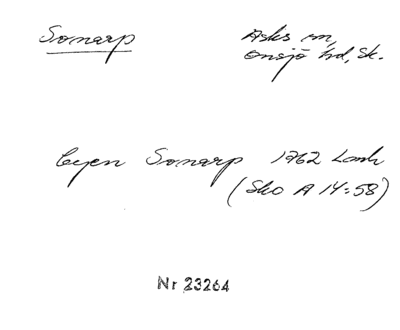 Somarp
Asks sn,
Onsjö hd, Sk.
Byen Somarp 1762 Lanh
(Sko A 14:58)
Nr 23264